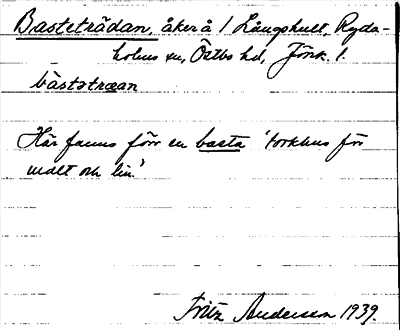 Basteträdan, åker å 1 Långshult, Ryda-
holms sn, Östbo hd, Jönk. l.
bàstətræan
Här fanns förr en basta 'torkhus för
malt och lin.'
Fritz Anderson 1939.